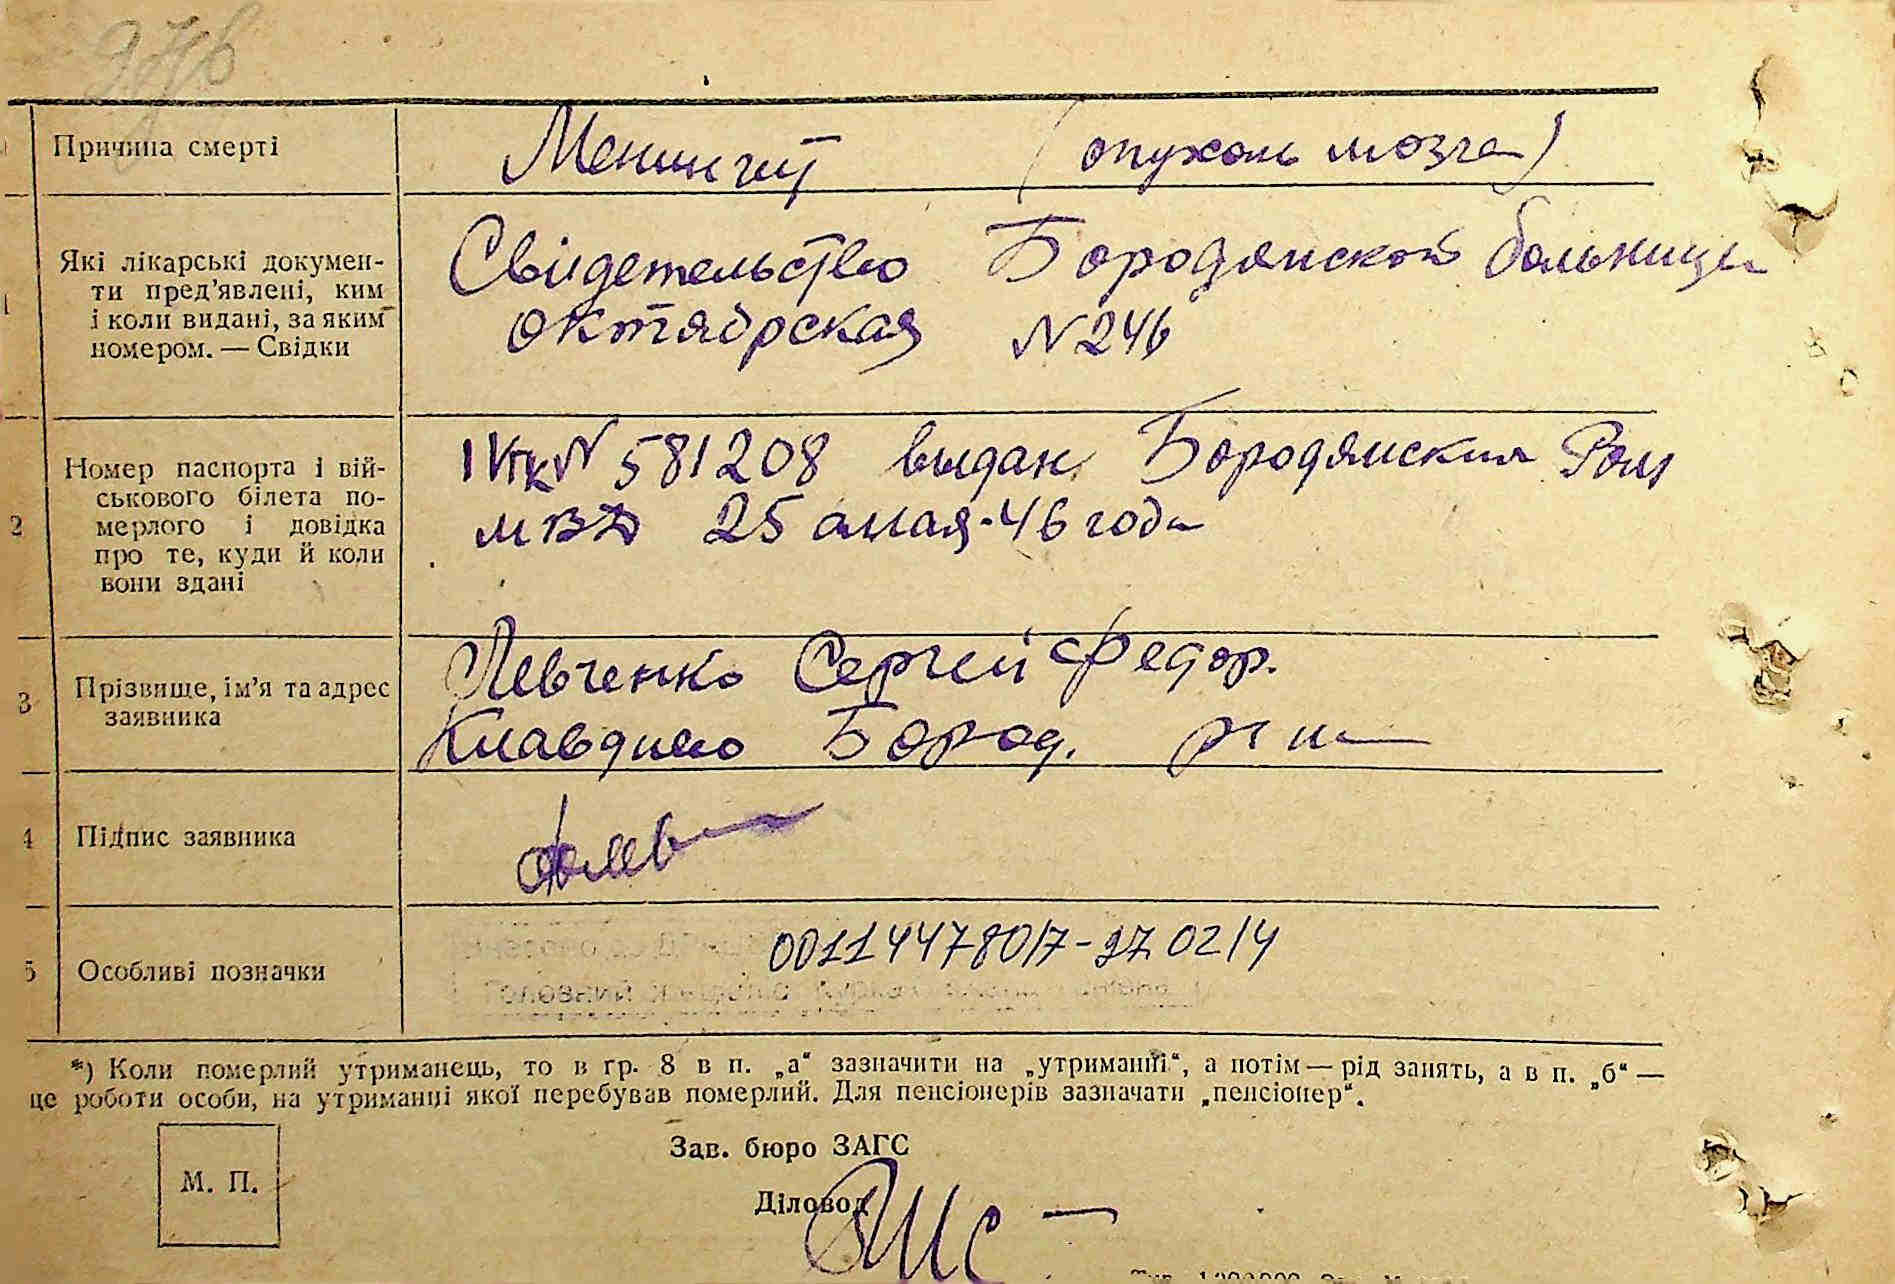 Причина смерті
Менингит (опухоль мозга)
1
Які лікарські докумен-
ти пред'явлені, ким
і коли видані, за яким
номером. — Свідки
Свидетельство Бородянской больницы
Октябрская N 246
2
Номер паспорта і вій-
ськового білета по-
мерлого і довідка
про те, куди й коли
вони здані
N 581208 выдан Бородянским Ром
МВД 25 мая - 46 года
3
Прізвище, ім'я та адрес
заявника
Левченко Сергей Федор.
Клавдиево Бород. р-н
4
Підпис заявника
5
Особливі позначки
00114478017-27 02/4
*) Коли померлий утриманець, то в гр. 8 в п. „а“ зазначити на „утриманні“, а потім — рід занять, а в п. „б“ —
це роботи особи, на утриманці якої перебував померлий. Для пенсіонерів зазначати „пенсіонер“.
М. П.
Зав. бюро ЗАГС
Діловод